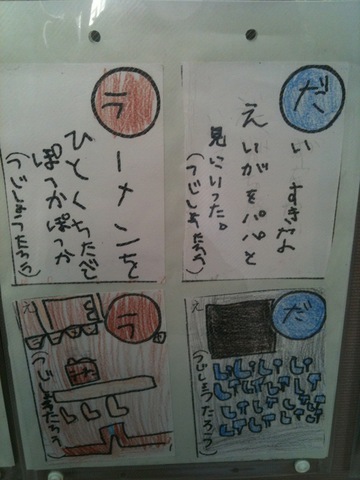 だ
い すきな
えいがをパパと
見にいった。
(うじしょうたろう)
ラ
ーメンを
ひとくちたべ
ぽっかぽっか
(うじしょうたろう)
え
だ
(うじしょうたろう)
え
ラ
(うじしょうたろう)